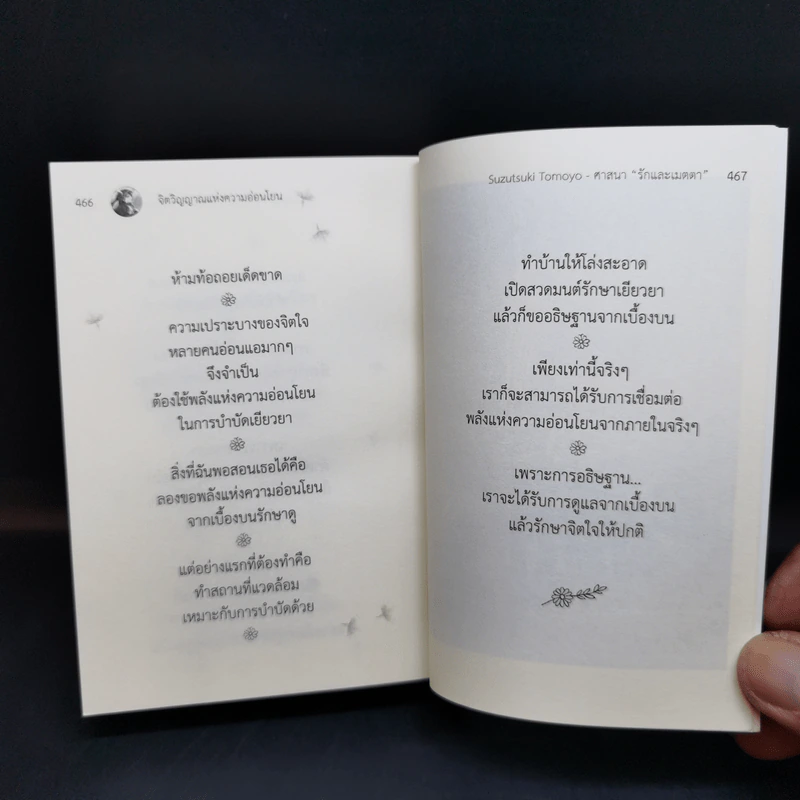 466
จิตวิญญาณแห่งความอ่อนโยน
ห้ามท้อถอยเด็ดขาด
ความเปราะบางของจิตใจ
หลายคนอ่อนแอมากๆ
จึงจำเป็น
ต้องใช้พลังแห่งความอ่อนโยน
ในการบำบัดเยียวยา
สิ่งที่ฉันพอสอนเธอได้คือ
ลองขอพลังแห่งความอ่อนโยน
จากเบื้องบนรักษาดู
แต่อย่างแรกที่ต้องทำคือ
ทำสถานที่แวดล้อม
เหมาะกับการบำบัดด้วย
Suzutsuki Tomoyo - ศาสนา “รักและเมตตา” 467
ทำบ้านให้โล่งสะอาด
เปิดสวดมนต์รักษาเยียวยา
แล้วก็ขออธิษฐานจากเบื้องบน
เพียงเท่านี้จริงๆ
เราก็จะสามารถได้รับการเชื่อมต่อ
พลังแห่งความอ่อนโยนจากภายในจริงๆ
เพราะการอธิษฐาน...
เราจะได้รับการดูแลจากเบื้องบน
แล้วรักษาจิตใจให้ปกติ